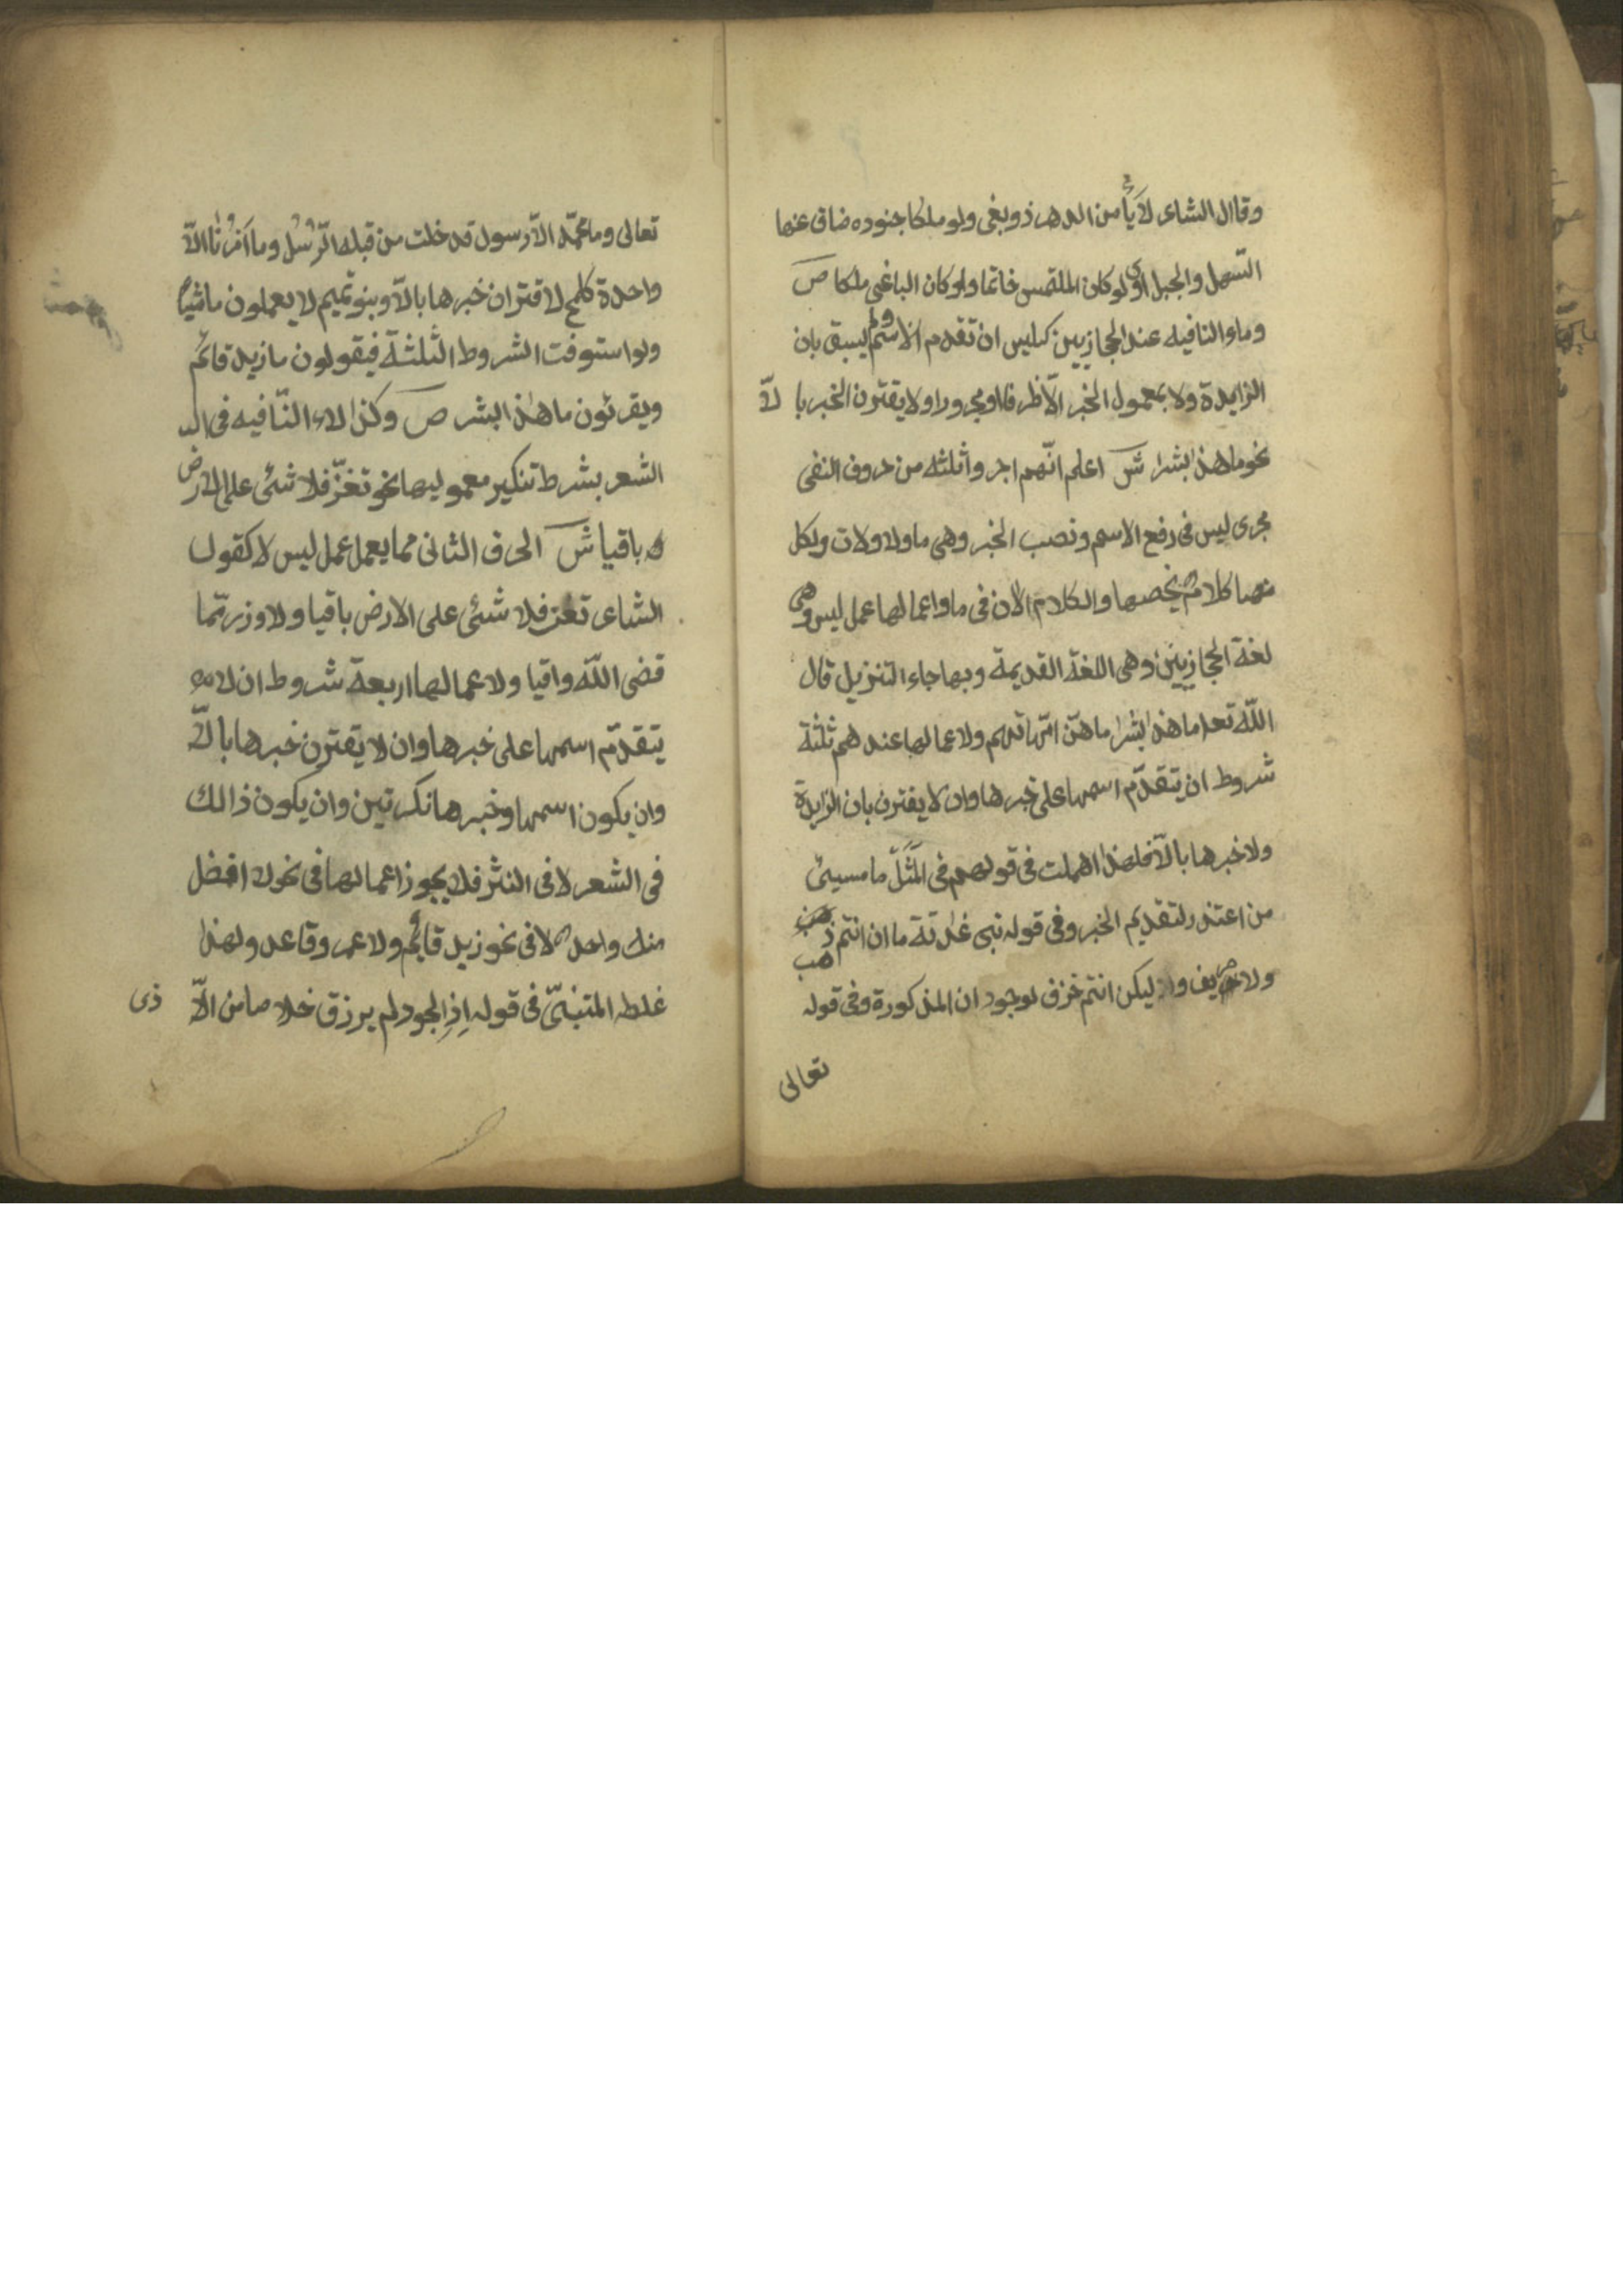 وقال الشاعر لا يأمن الدهر ذو بغى ولو ملكا جنوده ضاق عنها
السّهل والجبل اى لو كان الملتمس خاتما ولو كان الباغى ملكا ص
وماء النافيه عند الحجازيين كليس ان تقدم الاسم ولم يسبق بان
الزايدة ولا بمعمول الخبر الّا ظرفا او مجرورا ولا يقترن الخبر بالّا
نحو ما هذا بشرا ش اعلم انّهم اجروا ثلثه من حروف النفى
مجرى ليس فى رفع الاسم ونصب الخبر وهى ما ولا ولات ولكل
منها كلام يخصها والكلام الان فى ما واعمالها عمل ليس وهى
لغة الحجازيين وهى اللغة القديمة وبها جاء التنزيل قال
اللّه تعا ما هذا بشرا ما هنّ امّهاتهم ولاعمالها عندهم ثلثة
شروط ان يتقدّم اسمها على خبرها وان لا يقترن بان الزايدة
ولا خبرها بالّا فلهذا اهملت فى قولهم فى المثل ما مسيئ
من اعتذر لتقديم الخبر وفى قوله بنى غدانة ما ان انتم ذهب
ولا صريف ولا ليكن انتم خزف لوجود ان المذكورة وفى قوله
تعالى
تعالى وما محمّد الّا رسول قد خلت من قبله الرّسُل وما اَمْرُنا الّا
واحدة كلمح لاقتران خبرها بالّا وبنو تميم لا يعملون ما شيئا
ولو استوفت الشروط الثلثة فيقولون ما زيد قائم
ويقرئون ما هذا البشر ص وكذا لاء النّافيه فى
الشعر بشرط تنكير معموليها نحو تعزّ فلا شئى على الارض
باقيا ش الحرف الثانى مما يعمل عمل ليس لا كقول
الشاعر تعز فلا شئى على الارض باقيا ولا وزر ممّا
قضى اللّه واقيا ولاعمالها اربعة شروط ان لا
يتقدّم اسمها على خبرها وان لا يقترن خبرها بالّا
وان يكون اسمها وخبرها نكرتين وان يكون ذالك
فى الشعر لا فى النثر فلا يجوز اعمالها فى نحو لا افضل
منك واحد لا فى نحو زيد قائم ولا عمر وقاعد ولهذا
غلط المتنبّى فى قوله اِذا الجود لم يرزق خلاصا من الاّ ذى